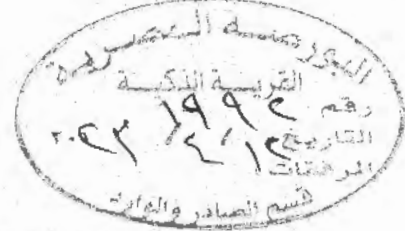 البورصة المصرية
القرية الذكية
رقم ١٩٩٢
التاريخ ١٢ / ٤ / ٢٠٢٣
المرفقات
قسم الصادر والوارد